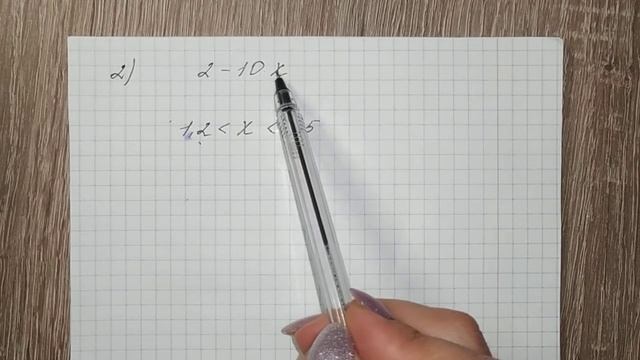 2) 2 - 10 x
1,2 < x < 5